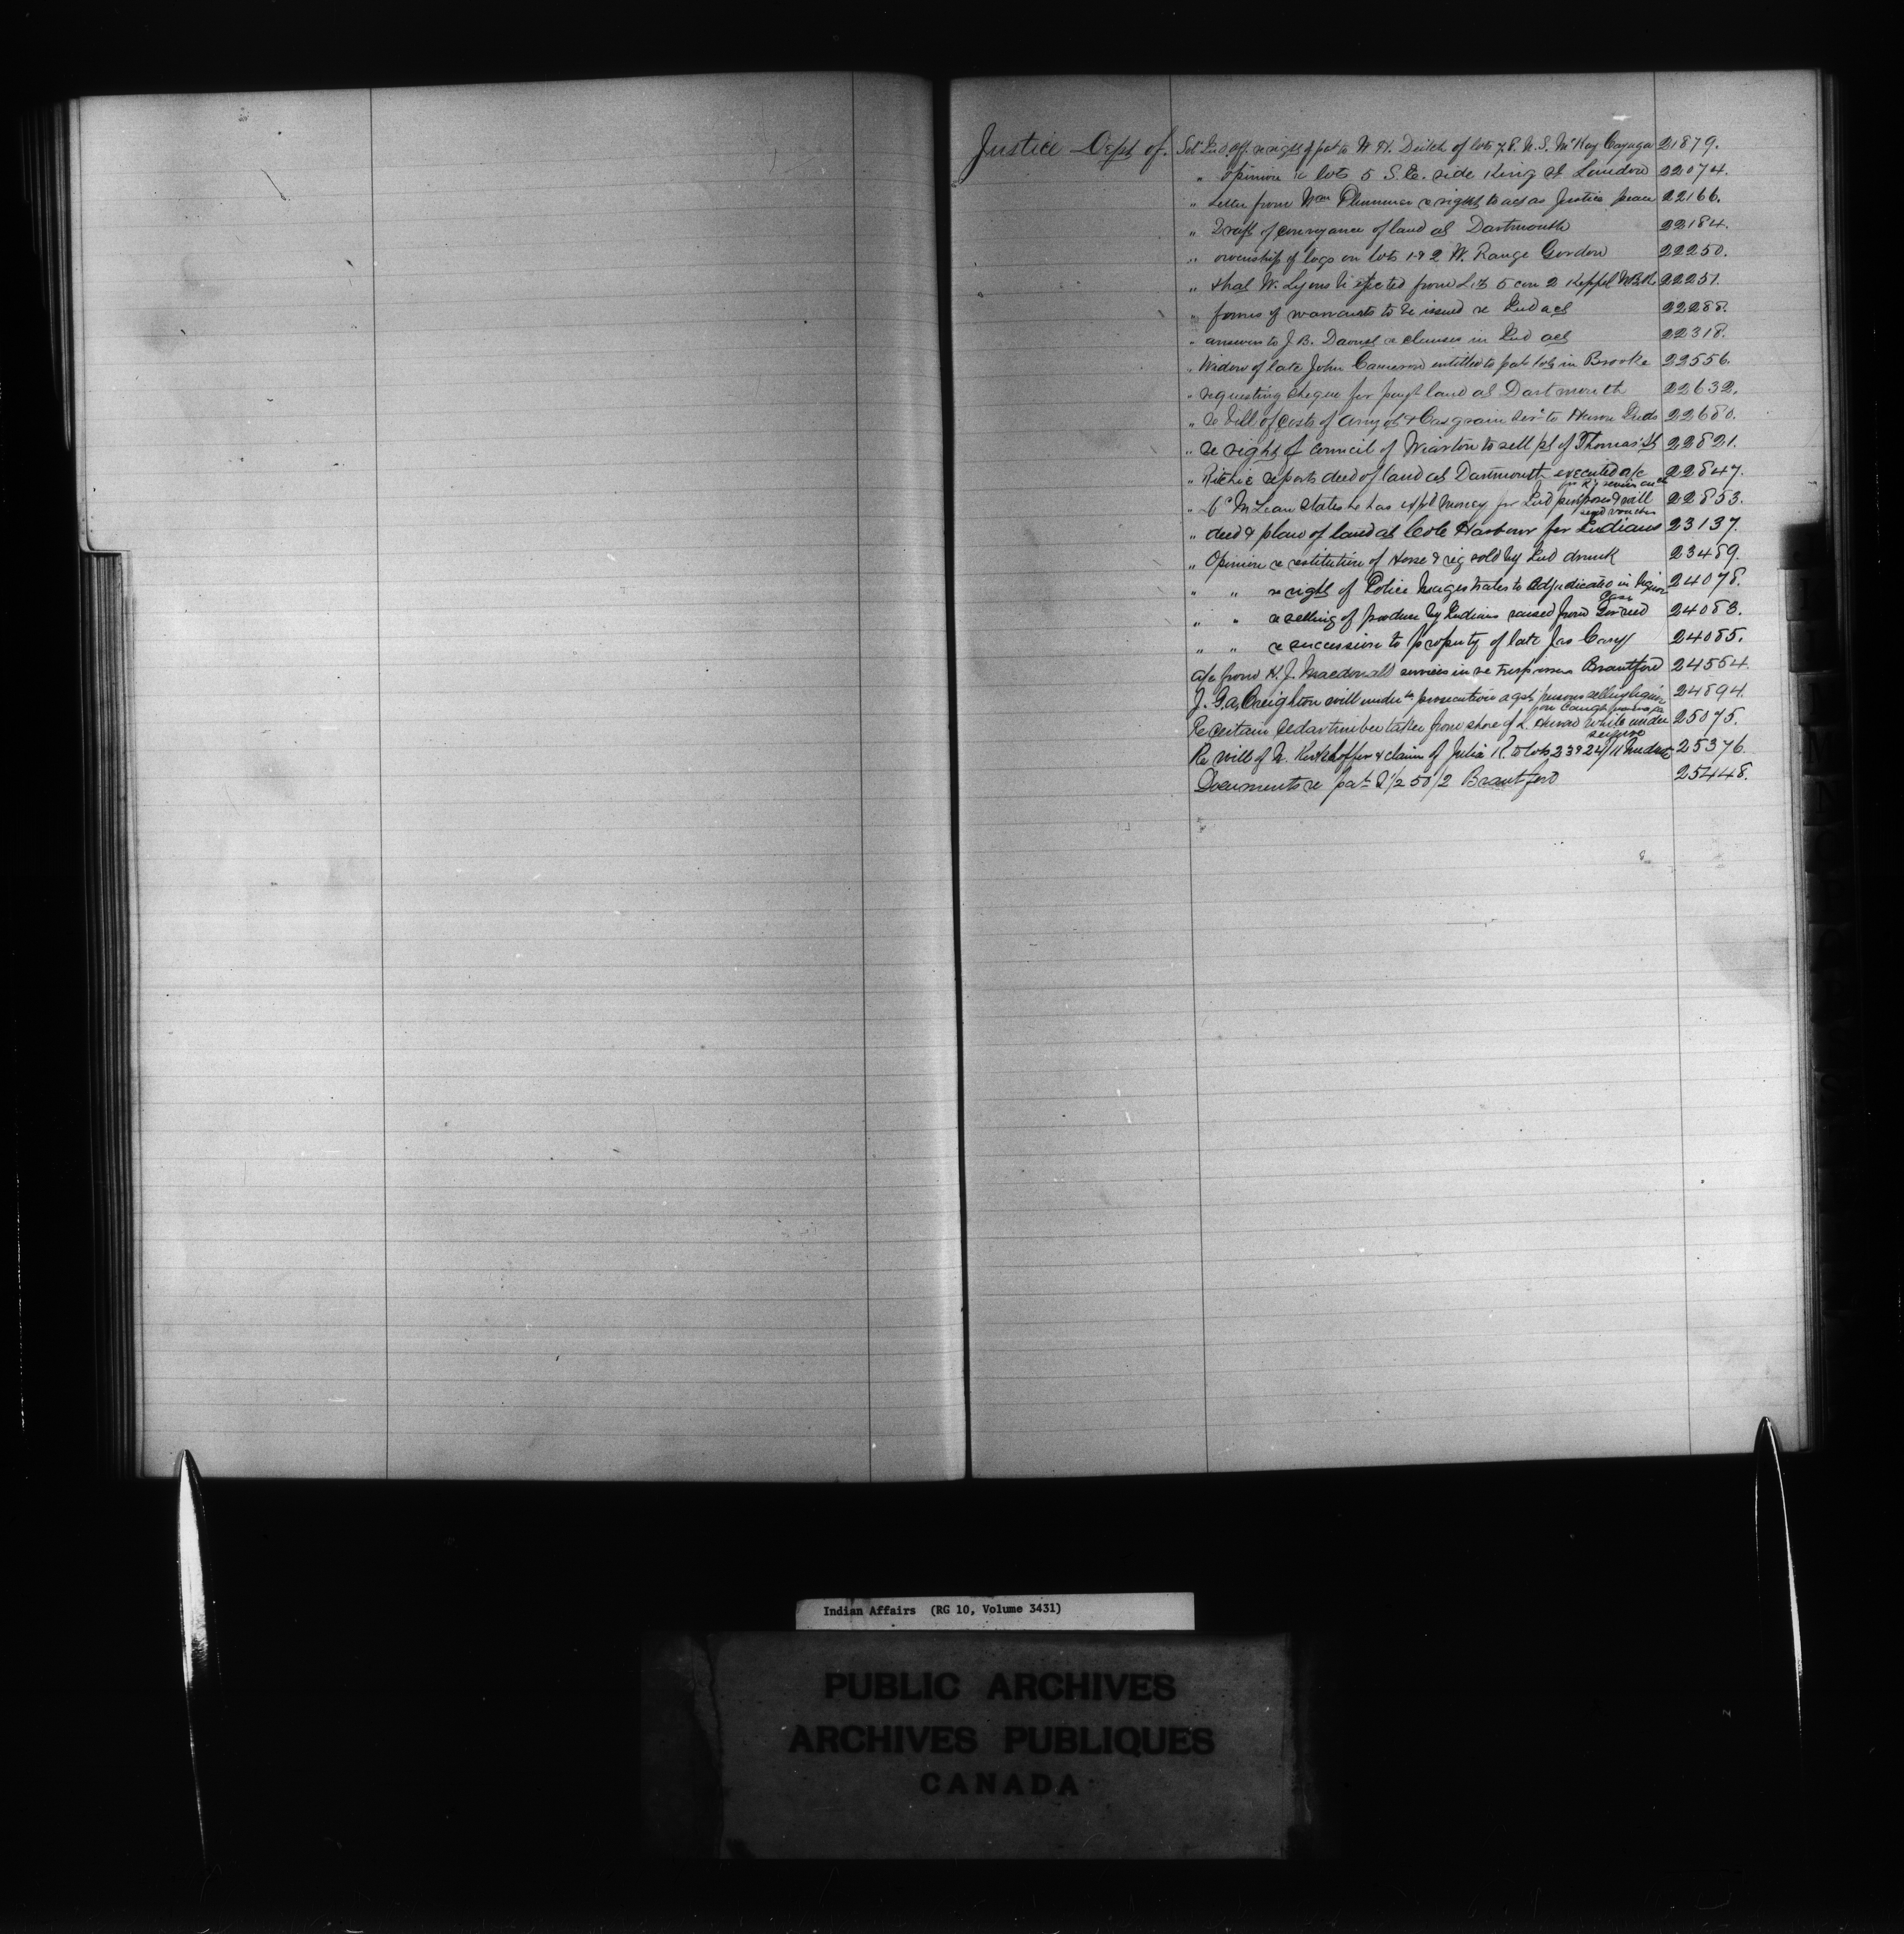 Justice Dept of. Ind. Aff. re right of pat to W. H. Deitch of lots 7, 8. N. S. McKay Cayuga 21879.
" opinion re lots 5 S. E. side King St London 22074.
" Letter from Wm Plummer re right to act as Justice peace 22166.
" Draft of conveyance of land at Dartmouth 22184.
" ownership of logs on lots 1 & 2 W. Range Gordon 22250.
" that W. Lyons be ejected from Lot 5 con 2 Keppel 22251.
" forms of warrants to be issued re Ind act 22288.
" answer to J. B. Daoust re clauses in Ind act 22318.
" Widow of late John Cameron entitled to pat lots in Brooke 22556.
" requesting cheque for payt land at Dartmouth 22632.
" re bill of costs of Amyot & Casgrain to Huron Inds 22680.
" re right of council of Wiarton to sell pt of Thomas St 22821.
" Ritchie reports deed of land at Dartmouth executed a/c 22847.
for R's services encl
" McLean states he has money for Ind purposes & will 22853.
send vouchers
" deed & plan of land at Cole Harbour for Indians 23137.
" Opinion re restitution of Horse & rig sold by Ind drunk 23489.
" " re right of Police Magistrates to Adjudicate in liquor 24078.
Cases
" " re selling of produce by Indians raised from Gov seed 24083.
" " re succession to property of late Jas Cary 24085.
a/c from H. J. Macdonald services in re trespassers Brantford 24564.
J. G. A. Creighton will under prosecution agst persons selling liquor 24894.
on Caugh
Re certain Cedar timber taken from shore of L. Huron while under 25075.
seizure
Re will of N. Kirchhoffer & claim of Julia K. to lots 23 & 24/11 25376
Documents re pat 1/2 50/2 Brantford 25448.
Indian Affairs (RG 10, Volume 3431)
PUBLIC ARCHIVES
ARCHIVES PUBLIQUES
CANADA